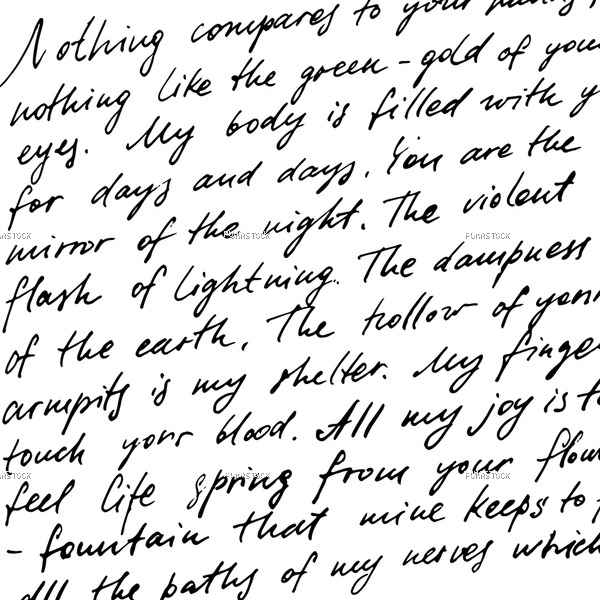 Nothing compares to your
nothing like the green-gold of your
eyes. My body is filled with
for days and days. You are the
mirror of the night. The violent
flash of lightning. The dampness
of the earth. The hollow of your
armpits is my shelter. My
touch your blood. All my joy is
feel life spring from your
- fountain that mine keeps to
all the paths of my nerves which
FUMASTOCK
FUMASTOCK
FUMASTOCK
FUMASTOCK